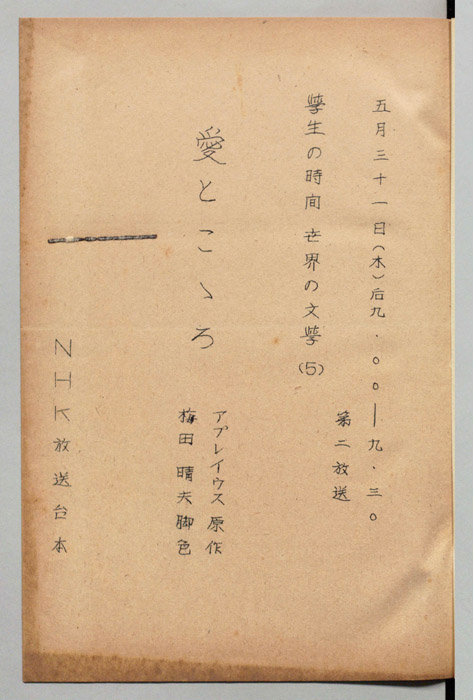 五月三十一日(木)后九.〇〇—九.三〇
第二放送
學生の時間 世界の文學(5)
愛とこゝろ
アプレイウス 原作
梅田 晴夫 脚色
NHK放送台本